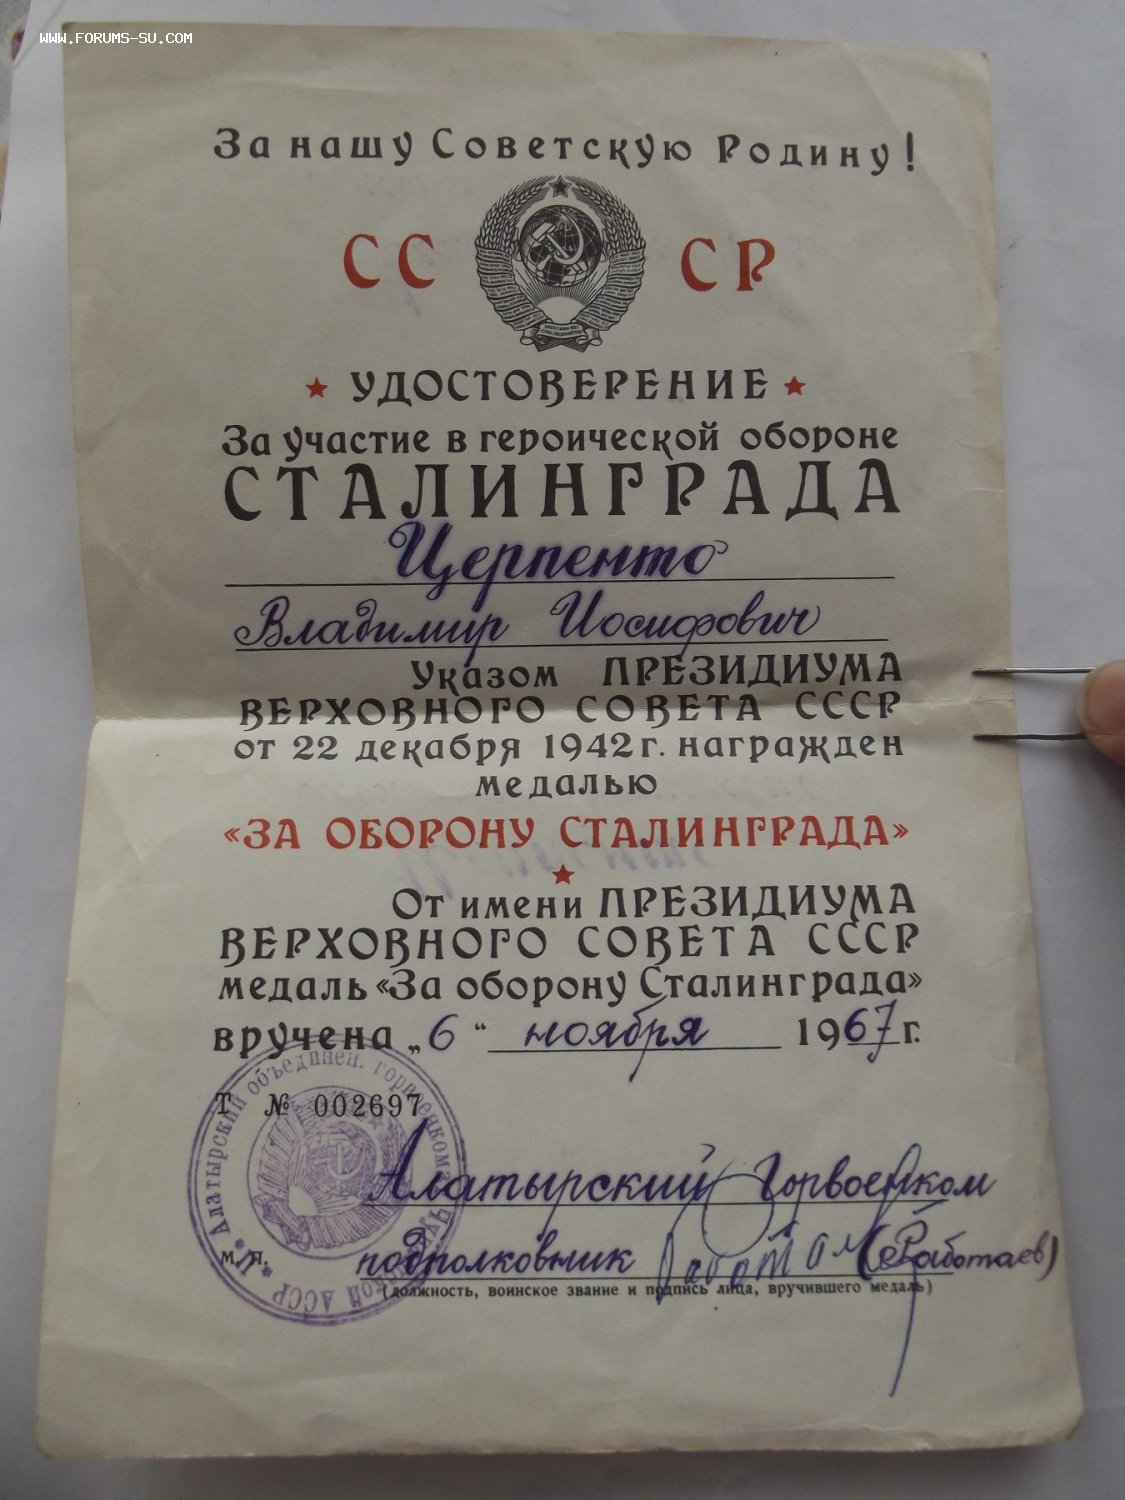 WWW.FORUMS-SU.COM
За нашу Советскую Родину!
СС СР
УДОСТОВЕРЕНИЕ
За участие в героической обороне
СТАЛИНГРАДА
Церпенто
Владимир Иосифович
Указом ПРЕЗИДИУМА
ВЕРХОВНОГО СОВЕТА СССР
от 22 декабря 1942 г. награжден
медалью
«ЗА ОБОРОНУ СТАЛИНГРАДА»
От имени ПРЕЗИДИУМА
ВЕРХОВНОГО СОВЕТА СССР
медаль «За оборону Сталинграда»
вручена „6" ноября 1967 г.
Т № 002697
Алатырский Горвоенком
М. П.
подполковник (Работаев)
(должность, воинское звание и подпись лица, вручившего медаль)
Алатырский объединен. горвоенкомат
АССР